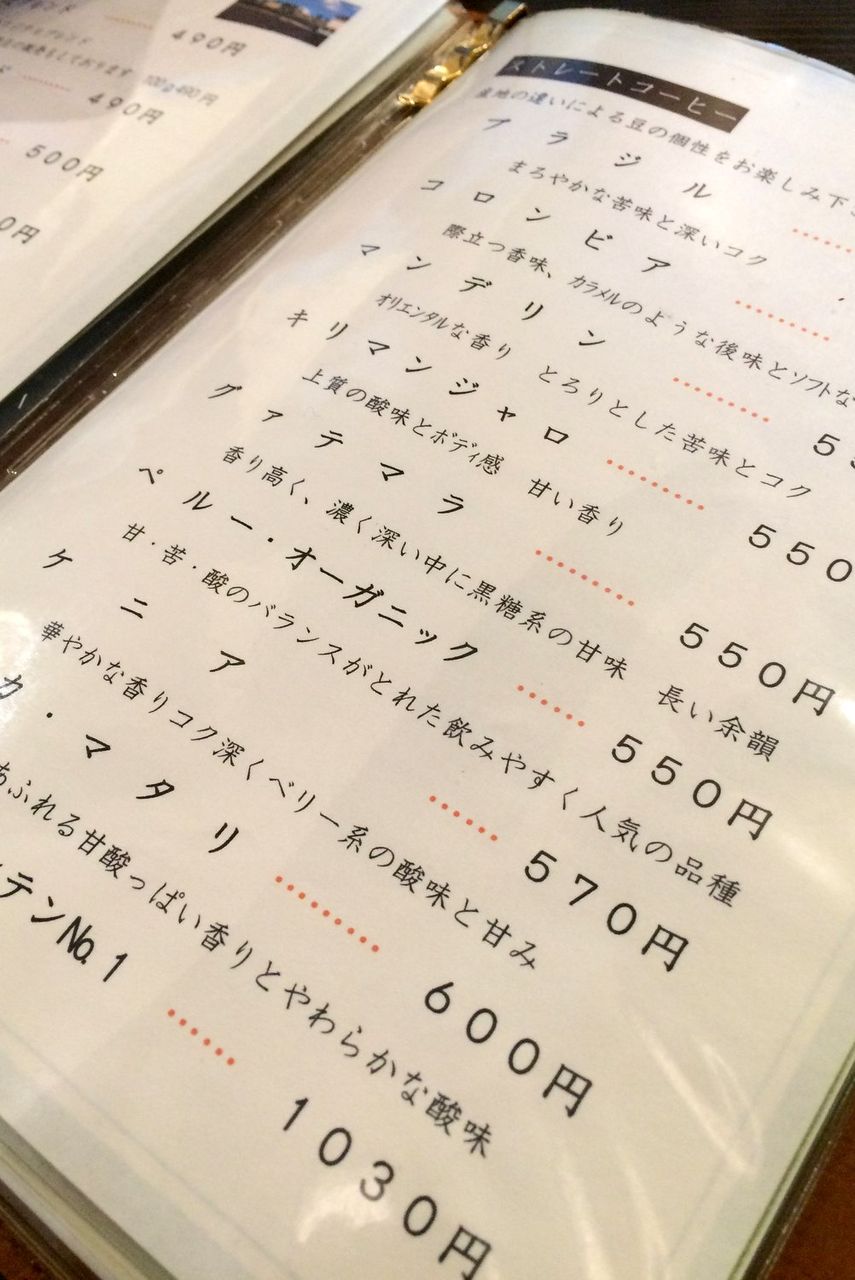 490円
ブレンド
100g490円
490円
500円
0円
ストレートコーヒー
産地の違いによる豆の個性をお楽しみ下
ブラジル ........
まろやかな苦味と深いコク
コロンビア ..........
際立つ香味、カラメルのような後味とソフトな
マンデリン .......... 55
オリエンタルな香り とろりとした苦味とコク
キリマンジャロ .......... 550
上質の酸味とボディ感 甘い香り
グァテマラ .......... 550円
香り高く、濃く深い中に黒糖系の甘味 長い余韻
ペルー・オーガニック ...... 550円
甘・苦・酸のバランスがとれた飲みやすく人気の品種
ケニア ...... 570円
華やかな香りコク深くベリー系の酸味と甘み
カ・マタリ .......... 600円
あふれる甘酸っぱい香りとやわらかな酸味
テン№1 ...... 1030円